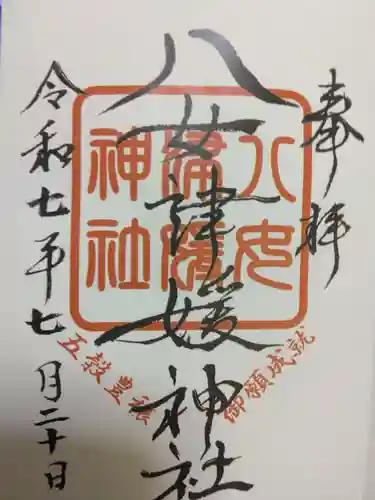 奉拝
八女津媛神社
八女津媛神社
御願成就
五穀豊穣
令和七年七月二十日